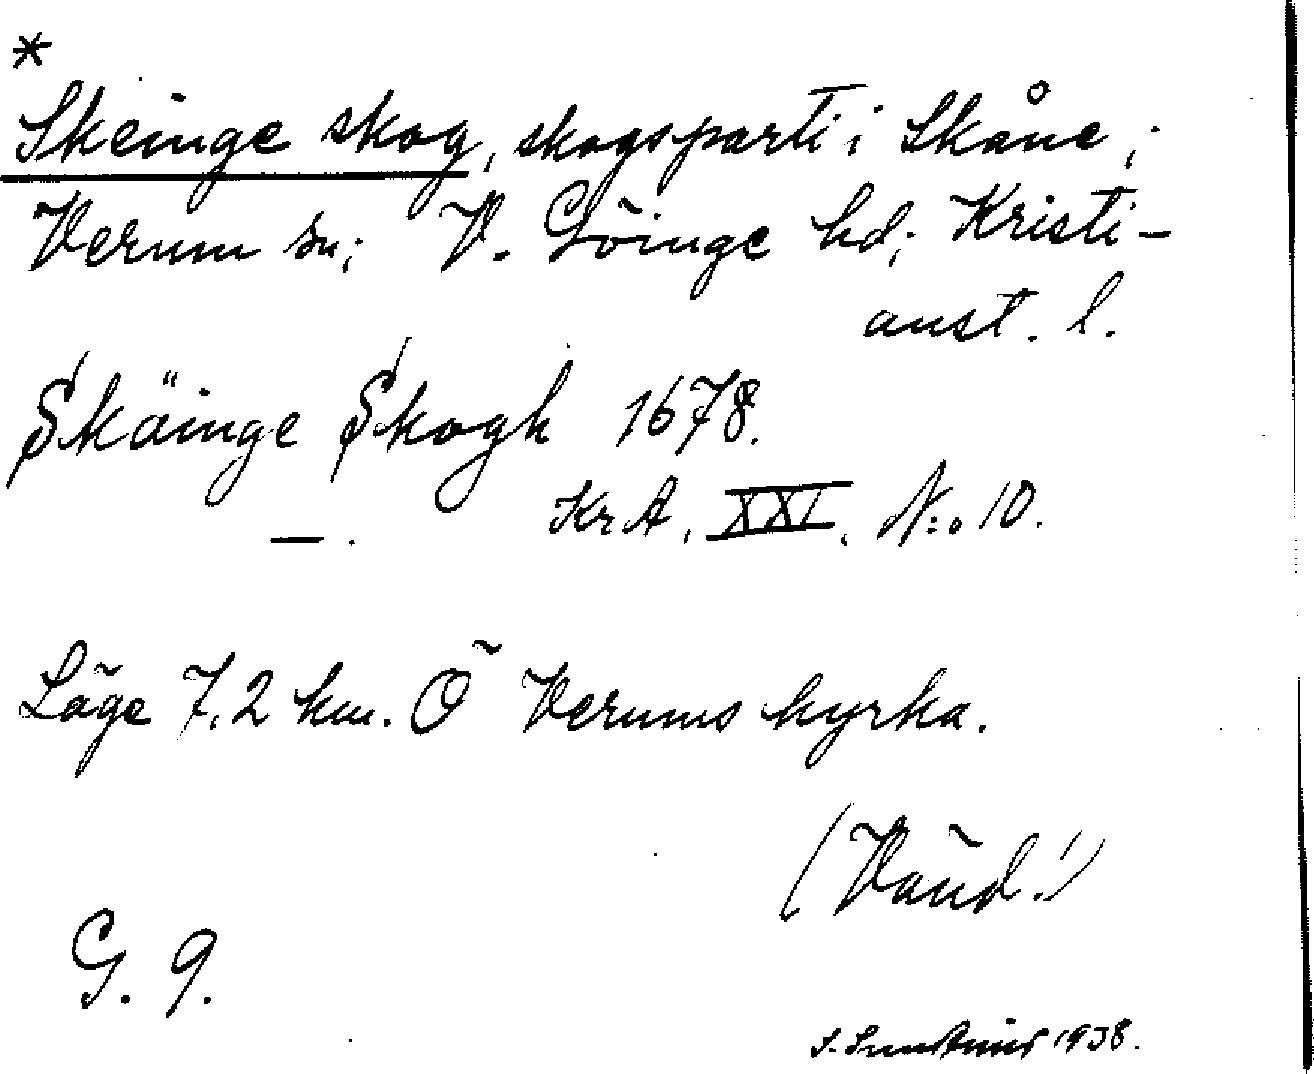 *
Skeinge skog, skogsparti i Skåne;
Verum sn; V. Göinge hd; Kristi-
anst. l.
Skäinge Skogh 1678.
— . KrA, XXI. N:o 10.
Läge 7,2 km. Ö Verums kyrka.
(Vänd!)
G. 9.
1938.